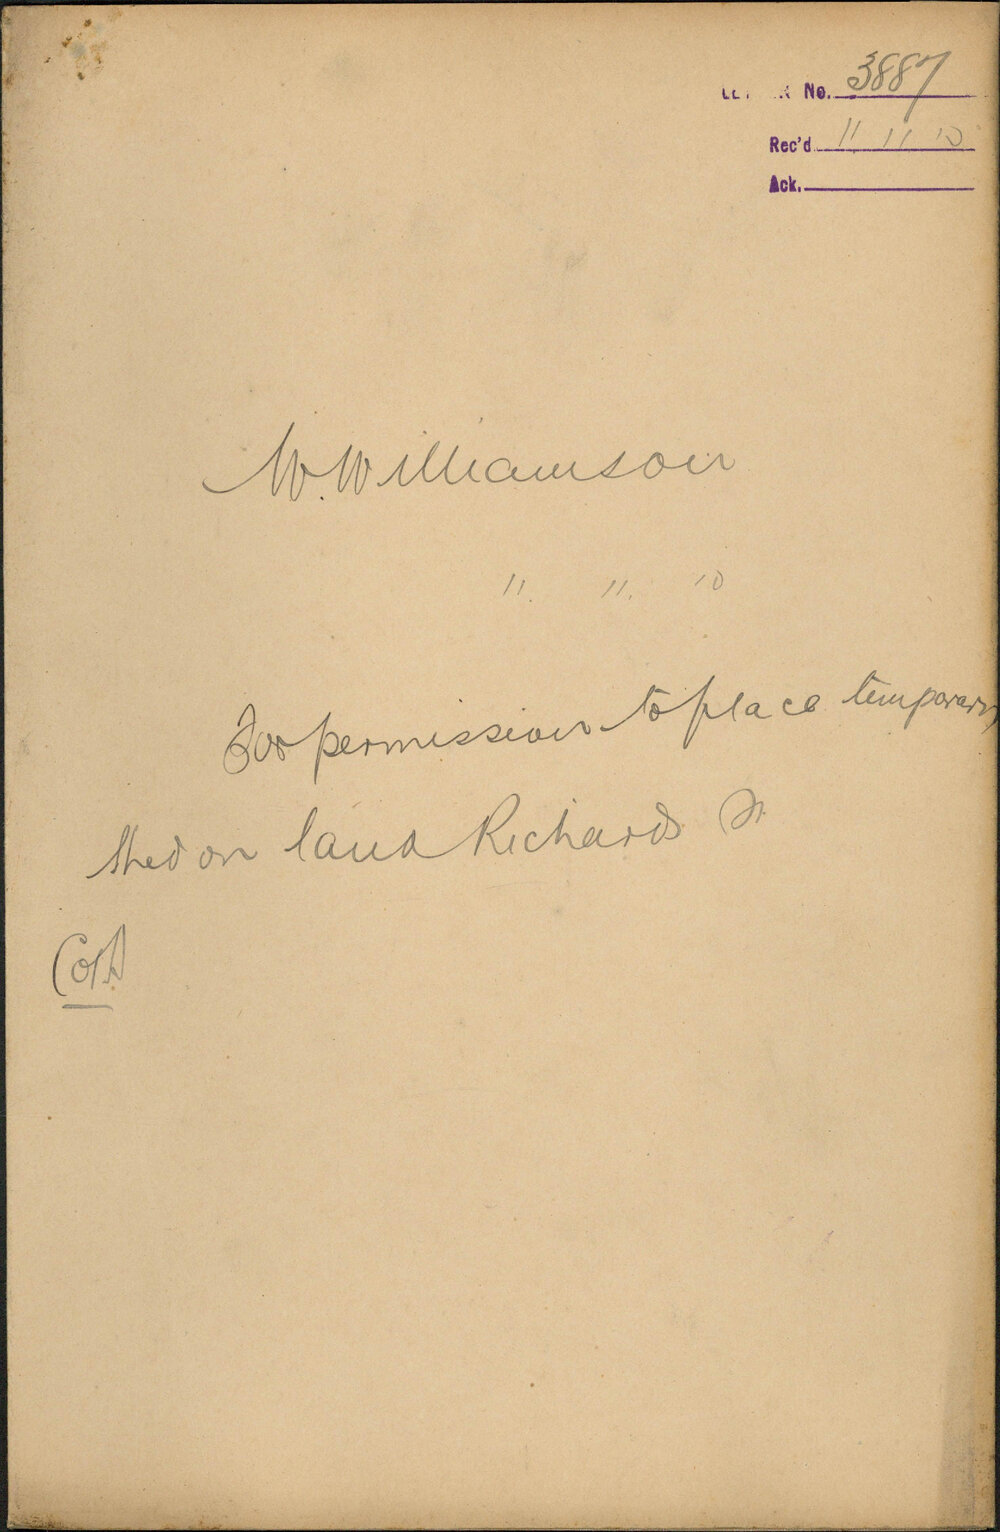 No. 3887
Rec'd 11 11 10
Ack.
W. Williamson
11. 11. 10
For permission to place temporary
shed on land Richards St.